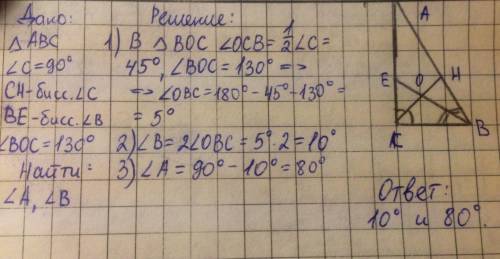 Дано:
△ABC
∠C=90°
CH-бисс.∠C
BE-бисс.∠B
∠BOC=130°
Найти:
∠A, ∠B
Решение:
1) В △BOC ∠OCB=1/2∠C=
45°, ∠BOC=130° =>
=> ∠OBC=180°-45°-130°=
= 5°
2) ∠B=2∠OBC=5°·2=10°
3) ∠A=90°-10°=80°
A
E O H
B
Ответ:
10° и 80°.